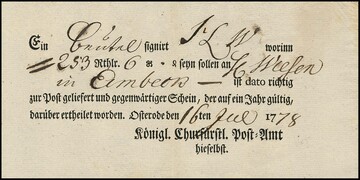 Ein Beutel signirt H W worinn
253 Rthlr. 6 gr. & seyn sollen an H Wessen
in Einbeck ist dato richtig
zur Post geliefert und gegenwärtiger Schein, der auf ein Jahr gültig,
darüber ertheilet worden. Osterode den 16ten Jul 1778
Königl. Churfürstl. Post-Amt
hieselbst.